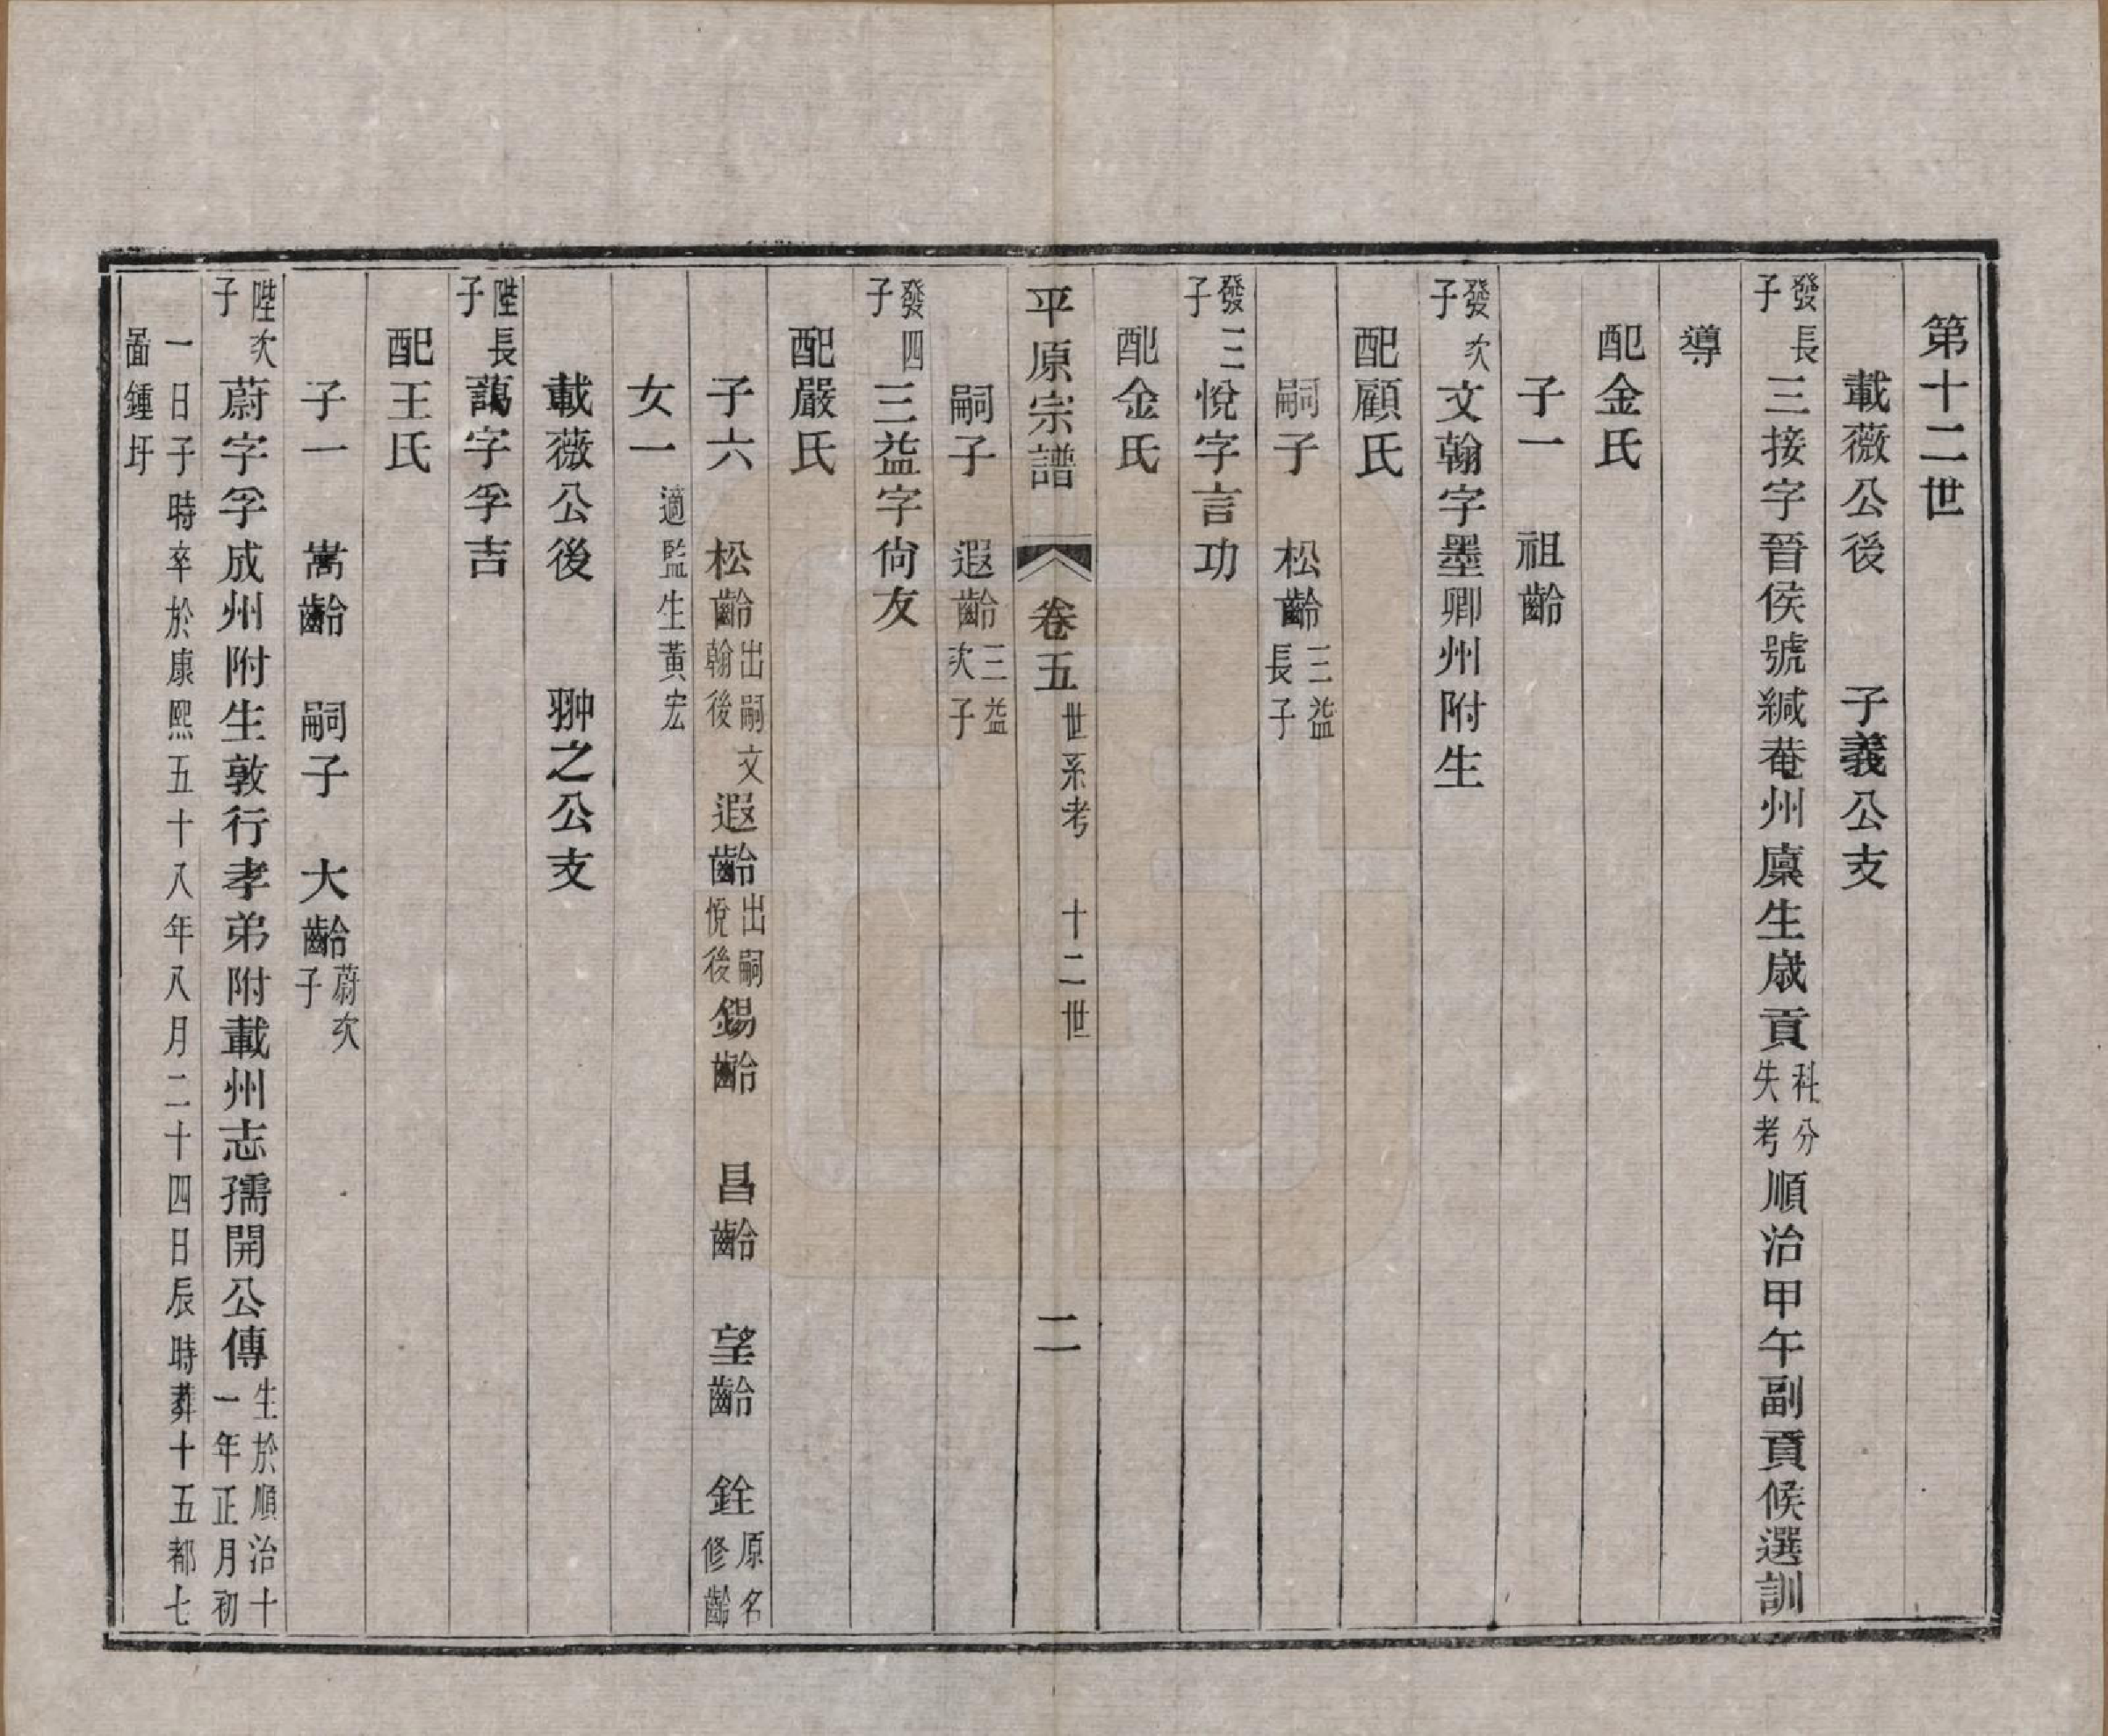 第十二世
載薇公後　子義公支
發長子三接字晉侯號緘菴州廩生歲貢科分失考順治甲午副貢候選訓
導
配金氏
子一　祖齡
發次子文翰字墨卿州附生
配顧氏
嗣子　松齡三益長子
發三子悅字言功
配金氏
平原宗譜　卷五　世系考　十二世　二
嗣子　遐齡三益次子
發四子三益字尙友
配嚴氏
子六　松齡出嗣文翰後　遐齡出嗣悅後　錫齡　昌齡　望齡　銓原名修齡
女一適監生黃宏
載薇公後　翀之公支
陛長子藹字孚吉
配王氏
子一　嵩齡　嗣子　大齡蔚次子
陛次子蔚字孚成州附生敦行孝弟附載州志孺開公傳生於順治十一年正月初
一日子時卒於康熙五十八年八月二十四日辰時葬十五都七
啚鍾圩